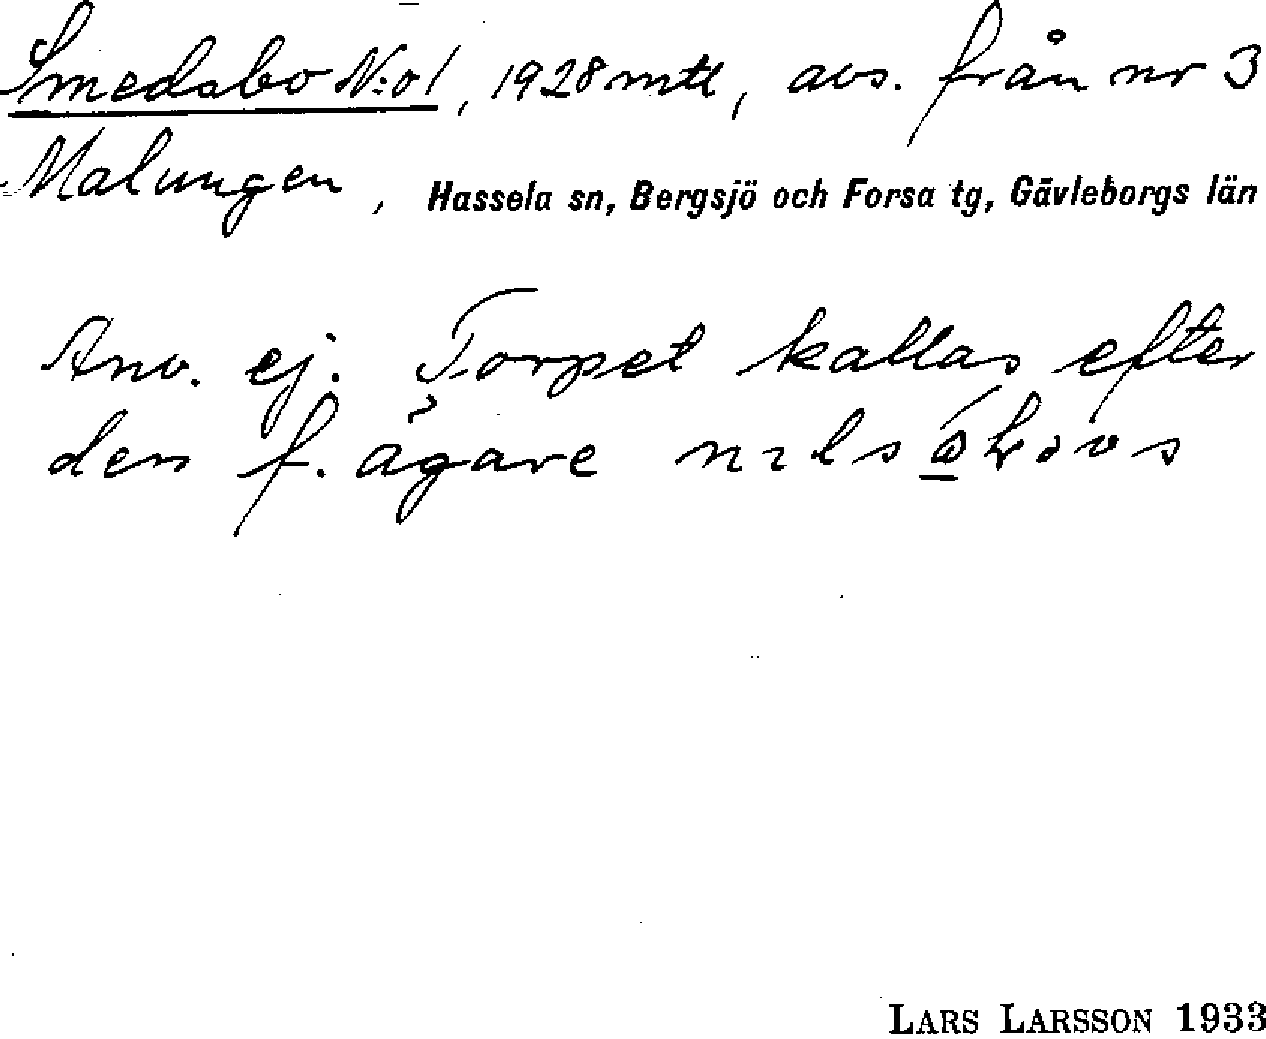 Smedsbo N:o 1, 1928 mtl, avs. från nr 3
Malungen, Hassela sn, Bergsjö och Forsa tg, Gävleborgs län
Anv. ej. Torpet kallas efter
den f. ägare nils
LARS LARSSON 1933